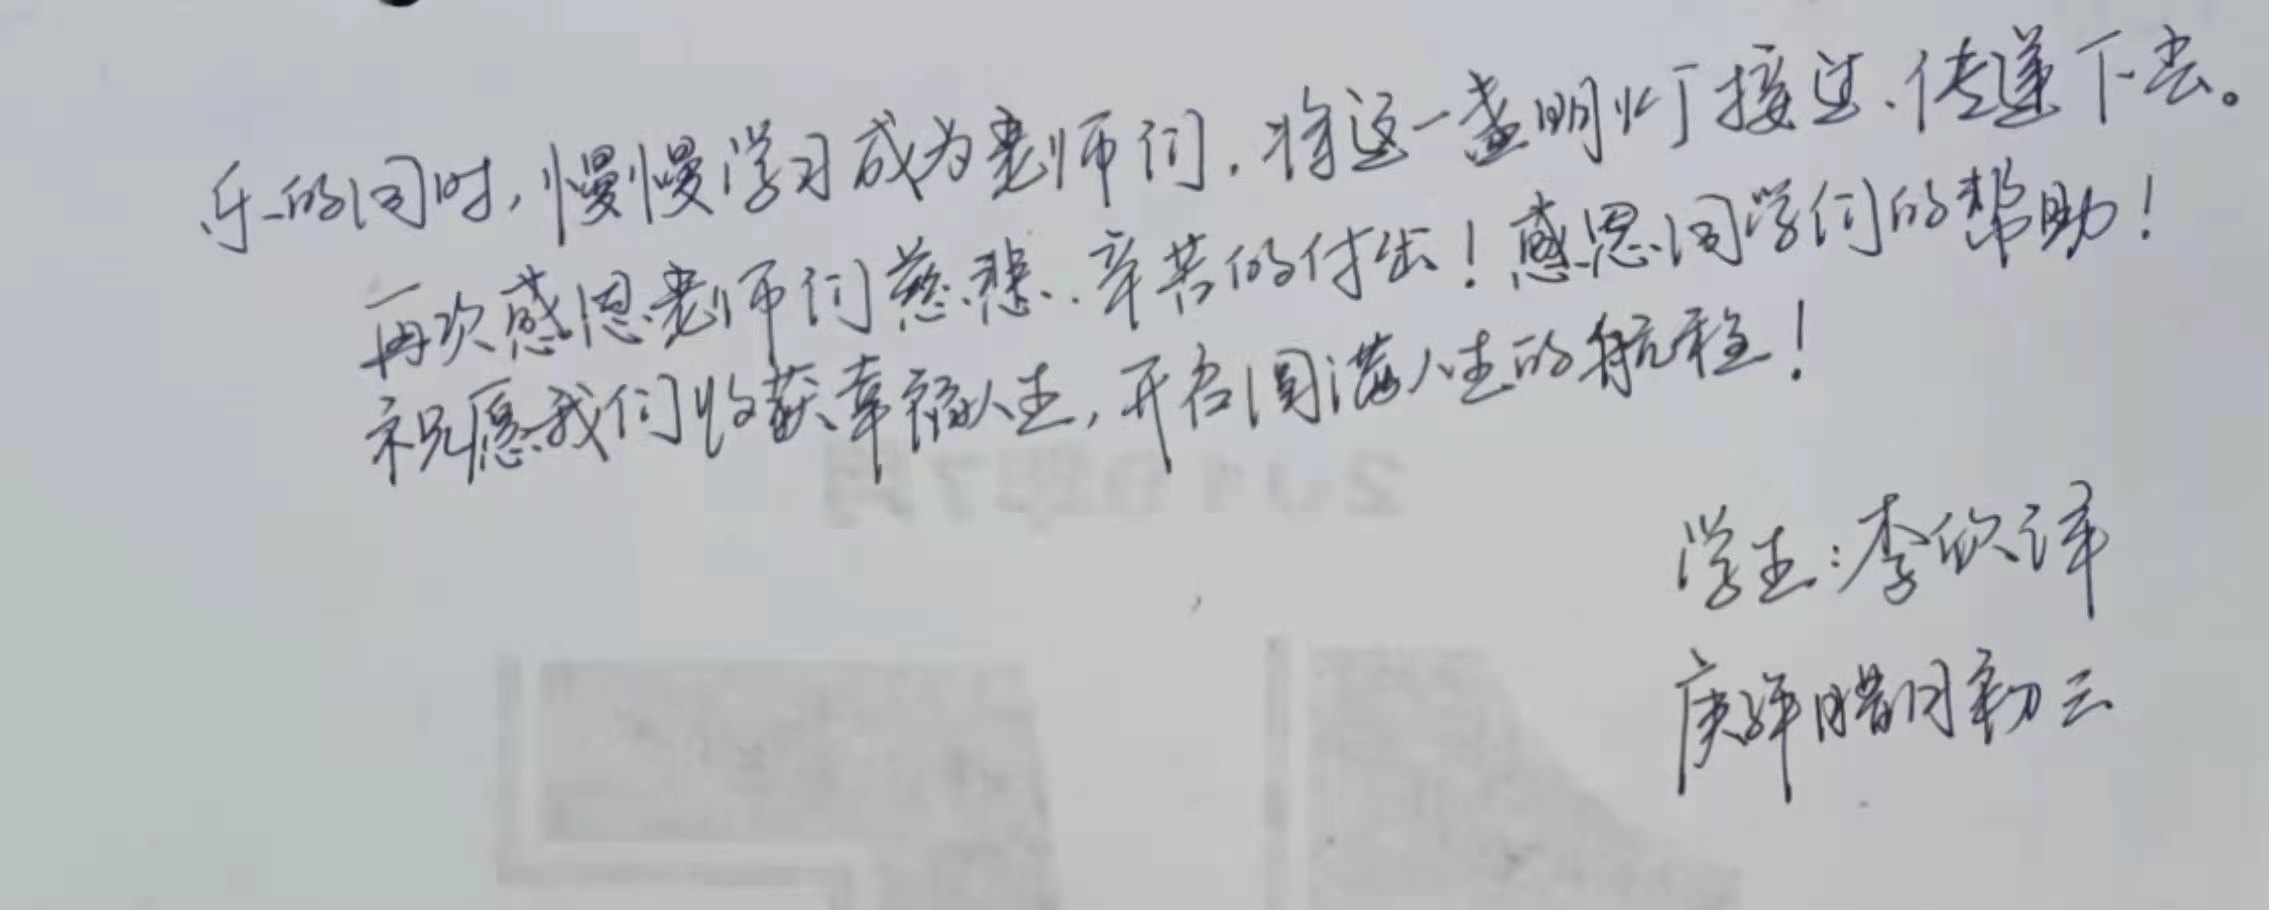 乐的同时,慢慢学习成为老师们,将这一盏明灯接过、传递下去。
再次感恩老师们慈悲、辛苦的付出!感恩同学们的帮助!
祝愿我们收获幸福人生,开启圆满人生的航程!
学生:李欣译
庚子年腊月初三
2019年7月